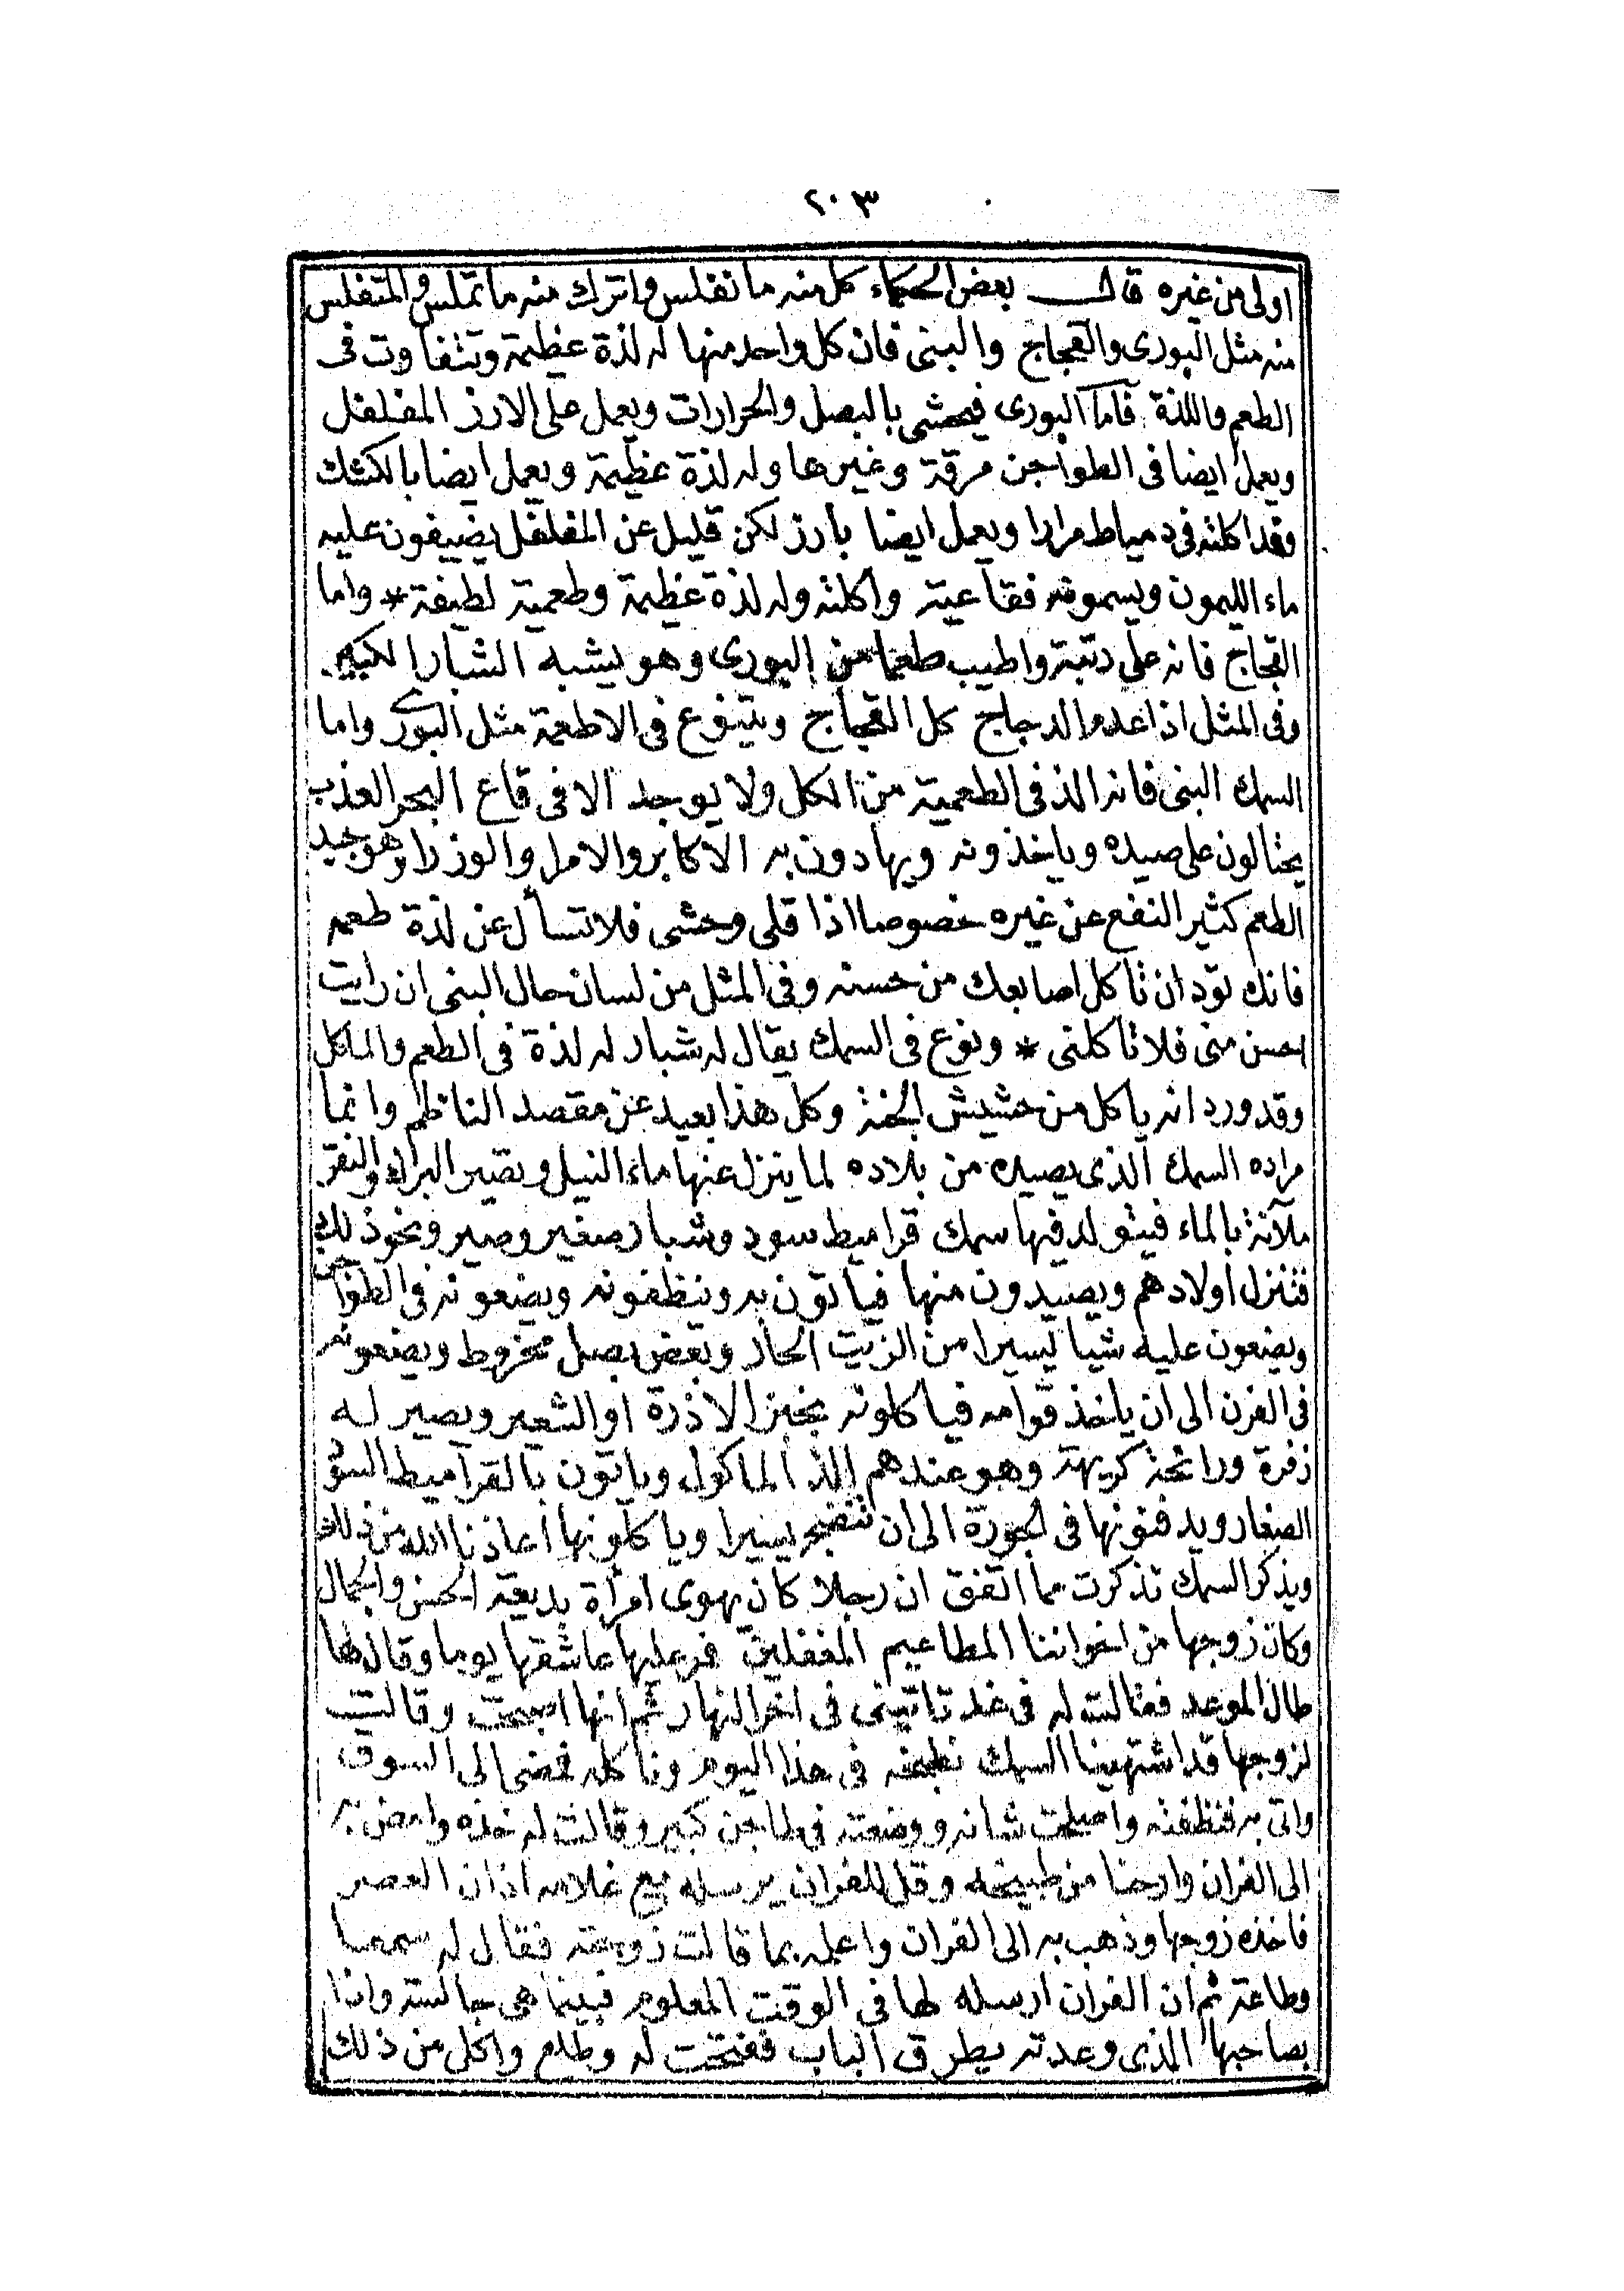 ٢٠٣
اولى من غيره قال بعض الحكماء كل منه ما تفلس واترك منه ما تملس والمتفلس
منه مثل البورى والقجاج والبنى فان كل واحد منها له لذة عظيمة وتتفاوت فى
الطعم واللذة فاما البورى فيحشى بالبصل والحرارات ويعمل على الارز المفلفل
ويعمل ايضا فى الطواجن مرقة وغيرها وله لذة عظيمة ويعمل ايضا بالكشك
وقد اكلته فى دمياط مرارا ويعمل ايضا بأرز لكن قليل عن المفلفل يضيفون عليه
ماء الليمون ويسموته فقاعية واكلته وله لذة عظيمة وطعمية لطيفة * واما
القجاج فانه على رتبة واطيب طعما من البورى وهو يشبه الشبار الكبير
وفى المثل اذا عدم الدجاج كل القجاج ويتنوع فى الاطعمة مثل البورى واما
السمك البنى فانه الذ فى الطعمية من الكل ولا يوجد الا فى قاع البحر العذب
يحتالون على صيده وياخذونه ويهادون به الاكابر والامرا والوزرا وهو جيد
الطعم كثير النفع عن غيره خصوصا اذا قلى وحشى فلا تسأل عن لذة طعمه
فانك تود ان تأكل اصابعك من حسنه وفى المثل من لسان حال البنى ان رايت
احسن منى فلا تاكلنى * ونوع فى السمك يقال له شبار له لذة فى الطعم والمأكل
وقد ورد انه ياكل من حشيش الجنة وكل هذا بعيد عن مقصد الناظم وانما
مراده السمك الذى يصيده من بلاده لما ينزل عنها ماء النيل وتصير البرك والنقر
ملآنة بالماء فيتولد فيها سمك قراميط سود وشبار صغير وصير ونحو ذلك
فتنزل اولادهم ويصيدون منها فيأتون به وينظفونه ويضعونه فى الطواجن
ويضعون عليه شيا يسيرا من الزيت الحار وبعض بصل مخروط ويضعونه
فى الفرن الى ان ياخذ قوامه فياكلونه بخبز الاذرة او الشعير ويصير له
زفرة ورائحة كريهة وهو عندهم الذ الماكول وياتون بالقراميط السود
الصغار ويدفنونها فى الجورة الى ان تنضج يسيرا وياكلونها اعاذنا الله من ذلك
وبذكر السمك تذكرت مما اتفق ان رجلا كان يهوى امرأة بديعة الحسن والجمال
وكان زوجها من اخواننا المطاعيم المغفلين فمر عليها عاشقها يوما وقال لها
طال الموعد فقالت له فى غد تاتينى فى اخر النهار ثم انها اصبحت وقالت
لزوجها قد اشتهينا السمك نطبخه فى هذا اليوم وناكله فمضى الى السوق
واتى به فنظفته واصلحت شانه ووضعته فى طاجن كبير وقالت له خذه وامض به
الى الفران وارحنا من طبيخه وقل للفران يرسله مع غلامه اذان العصر
فاخذه زوجها وذهب به الى الفران واعلمه بما قالت زوجته فقال له سمعا
وطاعة ثم ان الفران ارسله لها فى الوقت المعلوم فبينما هى جالسة واذا
بصاحبها الذى وعدته يطرق الباب ففتحت له وطلع واكل من ذلك